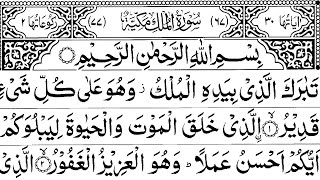 اٰیَاتُهَا ٣٠ (٦٧) سُوْرَةُ الْمُلْكِ مَكِّيَّةٌ (٧٧) رُكُوْعَاتُهَا ٢
بِسْمِ اللّٰهِ الرَّحْمٰنِ الرَّحِيْمِ
تَبٰرَكَ الَّذِيْ بِيَدِهِ الْمُلْكُ ز وَهُوَ عَلٰى كُلِّ شَيْءٍ
قَدِيْرُ ۨ ﴿١﴾ الَّذِيْ خَلَقَ الْمَوْتَ وَالْحَيٰوةَ لِيَبْلُوَكُمْ
اَيُّكُمْ اَحْسَنُ عَمَلًا ؕ وَهُوَ الْعَزِيْزُ الْغَفُوْرُ ﴿٢﴾ الَّذِيْ